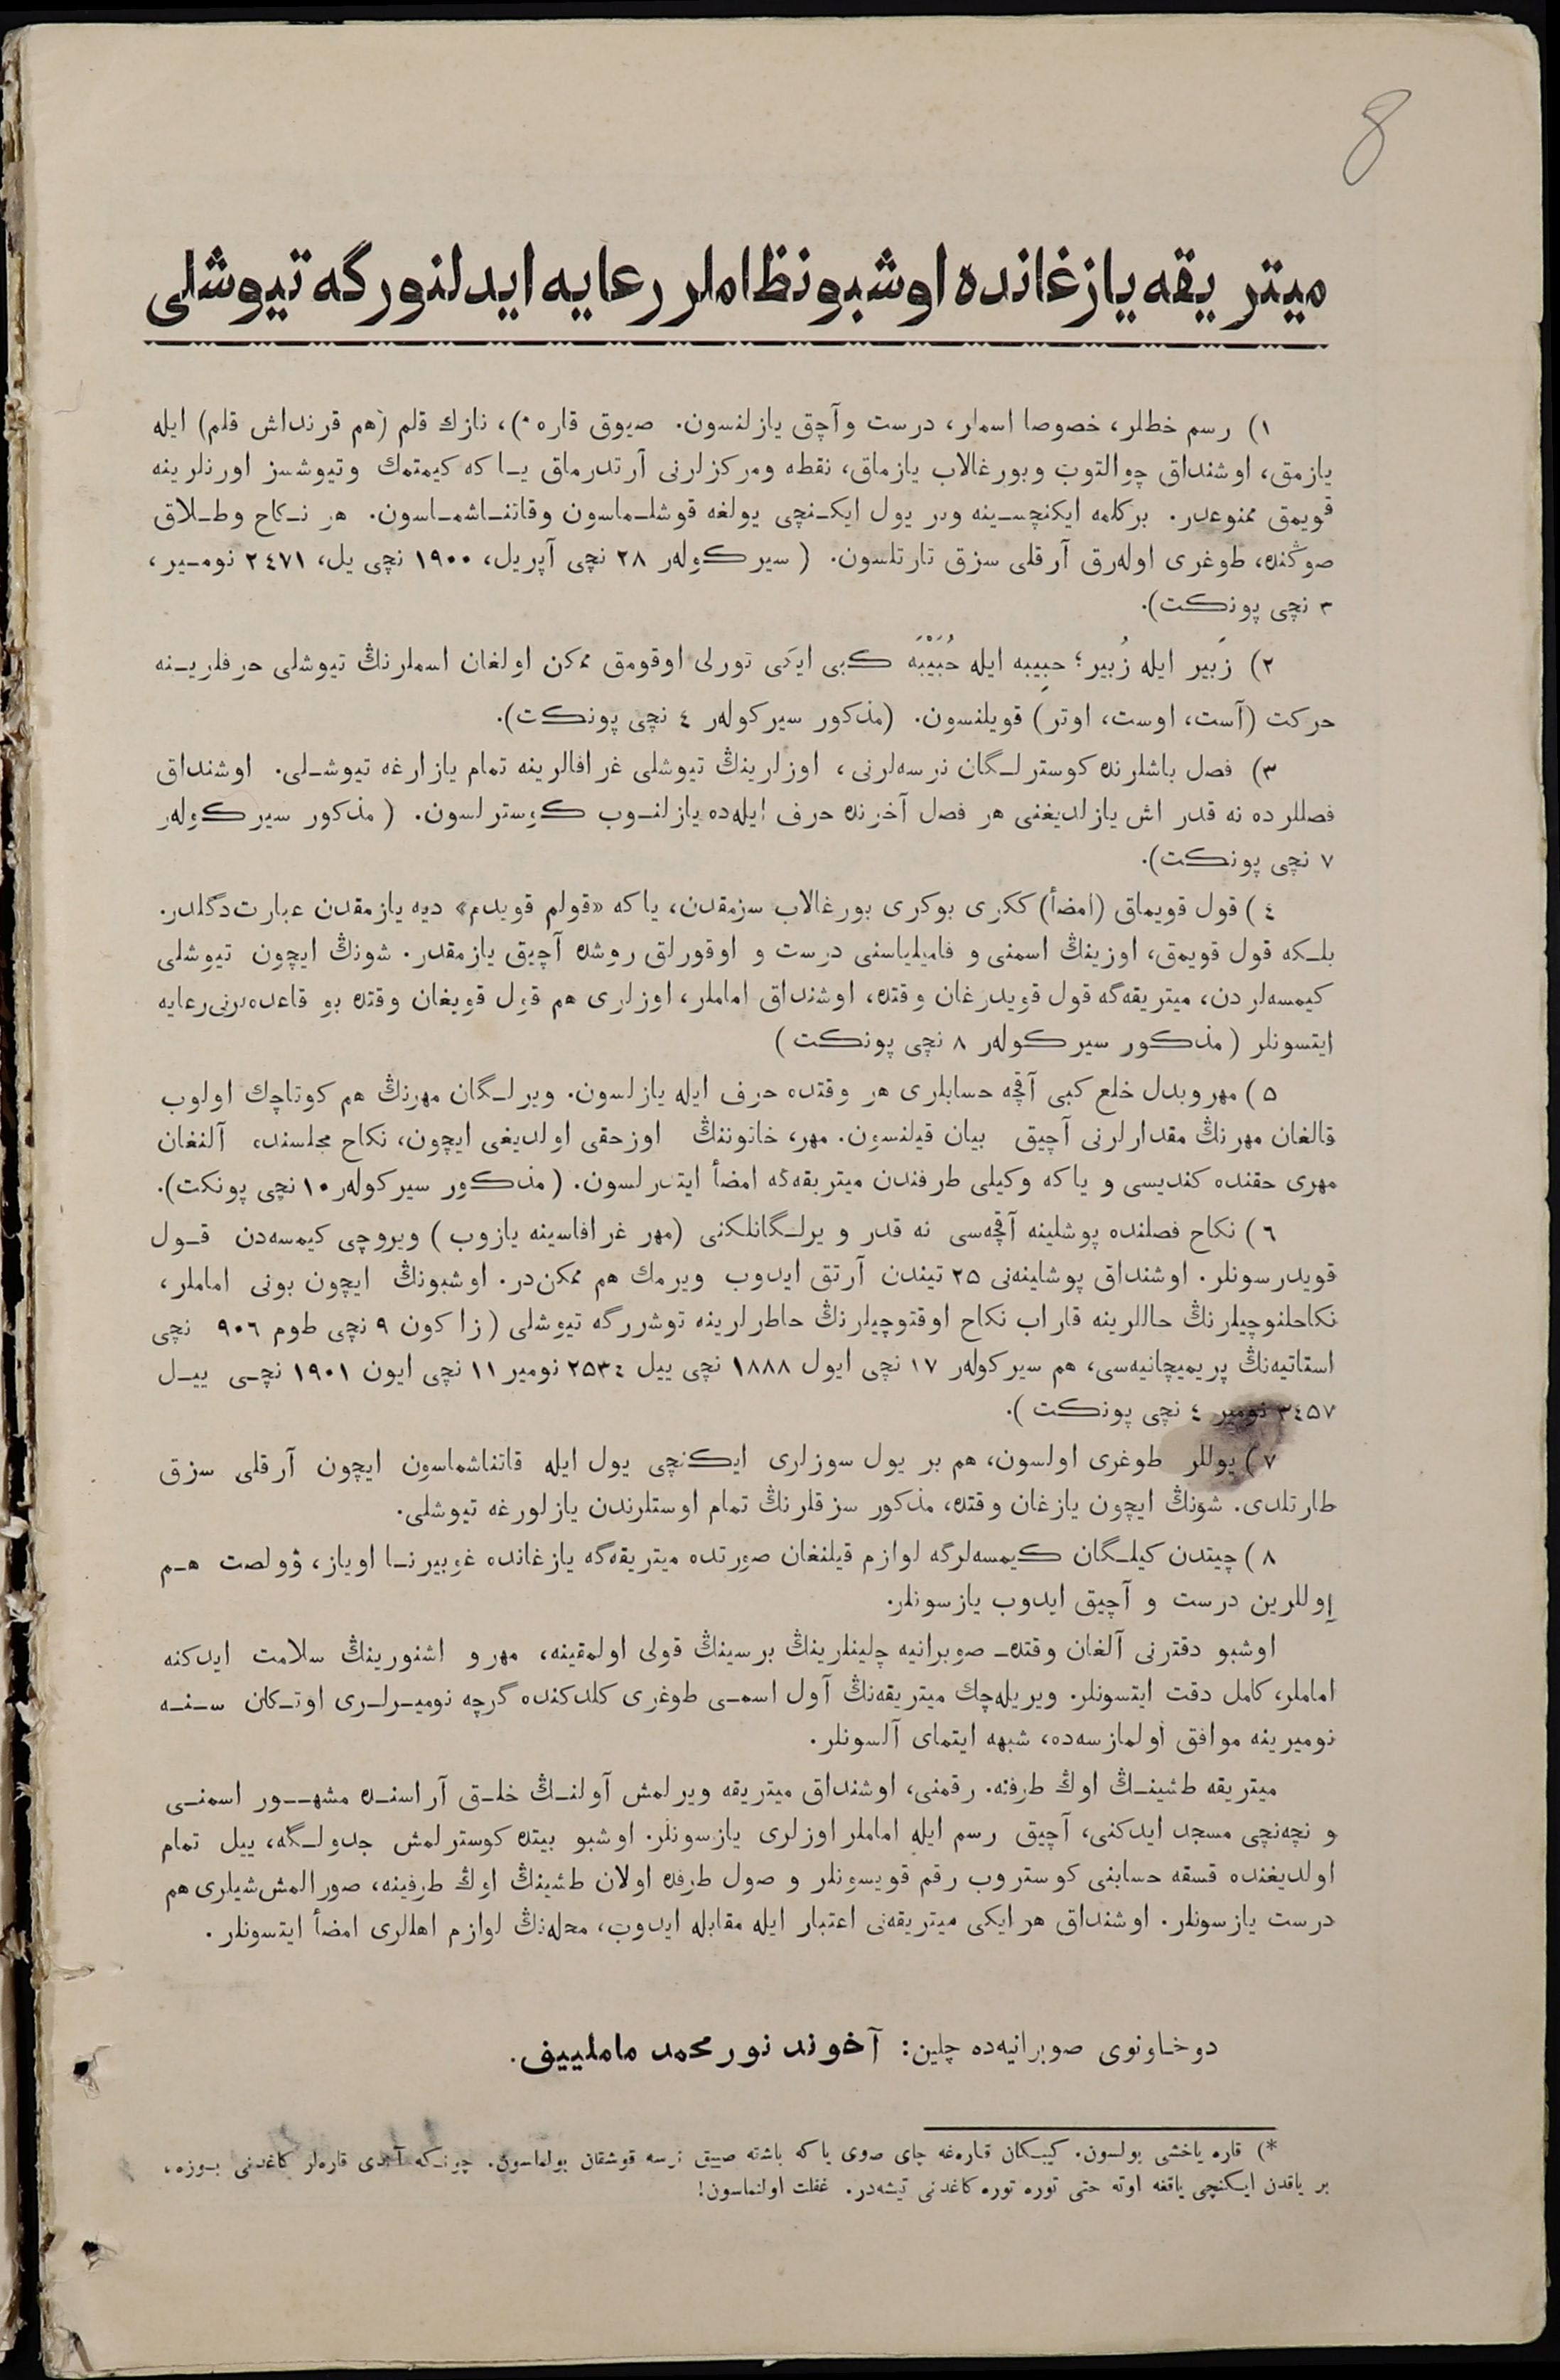 8
ميتريقه يازغانده اوشبو نظاملر رعايه ايدلنورگه تيوشلى
١) رسم خطلر، خصوصا اسملر، درست وآچق يازلنسون. صيوق قاره *)، نازك قلم (هم قرنداش قلم) ايله
يازمق، اوشنداق چوالتوب وبورغالاب يازماق، نقطه ومركزلرنى آرتدرماق ياكه كيمتمك وتيوشسز اورنلرينه
قويمق ممنوعدر. بركلمه ايكنچسينه وبر يول ايكنچى يولغه قوشلماسون وقاتناشماسون. هر نكاح وطلاق
صوڭنده، طوغرى اولەرق آرقلى سزق تارتلسون. (سيركولەر ٢٨ نچى آپريل، ١٩٠٠ نچى يل، ٢٤٧١ نومير،
٣ نچى پونكت).
٢) زَبير ايله زُبير؛ حبِيبه ايله حُبَيْبَه كبى ايكى تورلى اوقومق ممكن اولغان اسملرنڭ تيوشلى حرفلرينه
حركت (آست، اوست، اوتر) قويلنسون. (مذكور سيركولەر ٤ نچى پونكت).
٣) فصل باشلرنده كوسترلگان نرسەلرنى، اوزلرينڭ تيوشلى غرافالرينه تمام يازارغه تيوشلى. اوشنداق
فصللرده نه قدر اش يازلديغنى هر فصل آخرنده حرف ايلەده يازلنوب كوسترلسون. (مذكور سيركولەر
٧ نچى پونكت).
٤) قول قويماق (امضأ) ككرى بوكرى بورغالاب سزمقدن، ياكه «قولم قويدم» ديه يازمقدن عبارت دگلدر.
بلكه قول قويمق، اوزينڭ اسمنى و فاميلياسنى درست و اوقورلق روشده آچيق يازمقدر. شونڭ ايچون تيوشلى
كيمسەلردن، ميتريقەگه قول قويدرغان وقتده، اوشنداق اماملر، اوزلرى هم قول قويغان وقتده بو قاعدەلرنى رعايه
ايتسونلر (مذكور سيركولەر ٨ نچى پونكت)
٥) مهر وبدل خلع كبى آقچه حسابلرى هر وقتده حرف ايله يازلسون. ويرلگان مهرنڭ هم كوتاچك اولوب
قالغان مهرنڭ مقدارلرنى آچيق بيان قيلنسون. مهر، خاتوننڭ اوز حقى اولديغى ايچون، نكاح مجلسنده آلنغان
مهرى حقنده كنديسى و ياكه وكيلى طرفندن ميتريقەگه امضأ ايتدرلسون. (مذكور سيركولەر ١٠ نچى پونكت).
٦) نكاح فصلنده پوشلينه آقچەسى نه قدر ويرلگانلكنى (مهر غرافاسينه يازوب) ويروچى كيمسەدن قول
قويدرسونلر. اوشنداق پوشلينەنى ٢٥ تيندن آرتق ايدوب ويرمك هم ممكن در. اوشبونڭ ايچون بونى اماملر،
نكاحلنوچيلرنڭ حاللرينه قاراب نكاح اوقتوچيلرنڭ خاطرلرينه توشررگه تيوشلى (زاكون ٩ نچى طوم ٩٠٦ نچى
استاتيەنڭ پريميچانيەسى، هم سيركولەر ١٧ نچى ايول ١٨٨٨ نچى ييل ٢٥٣٤ نومير ١١ نچى ايون ١٩٠١ نچى ييل
٣٤٥٧ نومير ٤ نچى پونكت).
٧) يوللر طوغرى اولسون، هم بر يول سوزلرى ايكنچى يول ايله قاتناشماسون ايچون آرقلى سزق
طارتلدى. شونڭ ايچون يازغان وقتده، مذكور سزقلرنڭ تمام اوستلرندن يازلورغه تيوشلى.
٨) چيتدن كيلگان كيمسەلرگه لوازم قيلنغان صورتده ميتريقەگه يازغانده غوبيرنا اوياز، ۋولصت هم
اوللرين درست و آچيق ايدوب يازسونلر.
اوشبو دفترنى آلغان وقتده صوبرانيه چلينلرينڭ برسينڭ قولى اولمقينه، مهر و اشنورينڭ سلامت ايدكنه
اماملر، كامل دقت ايتسونلر. ويريلەچك ميتريقەنڭ آول اسمى طوغرى كلدكنده گرچه نوميرلرى اوتكان سنه
نوميرينه موافق اولمازسەده، شبهه ايتماى آلسونلر.
ميتريقه طشينڭ اوڭ طرفنه. رقمنى، اوشنداق ميتريقه ويرلمش آولنڭ خلق آراسنده مشهور اسمنى
و نچەنچى مسجد ايدكنى، آچيق رسم ايله اماملر اوزلرى يازسونلر. اوشبو بيتده كوسترلمش جدولگه، ييل تمام
اولديغنده قسقه حسابنى كوستروب رقم قويسونلر و صول طرفده اولان طشينڭ اوڭ طرفينه، صورالمش شيلرى هم
درست يازسونلر. اوشنداق هر ايكى ميتريقەنى اعتبار ايله مقابله ايدوب، محلەنڭ لوازم اهللرى امضأ ايتسونلر.
دوخاونوى صوبرانيەده چلين: آخوند نورمحمد ماملييف.
*) قاره ياخشى بولسون. كيبكان قارەغه چاى صوى ياكه باشته صييق نرسه قوشقان بولماسون. چونكه آندى قارەلر كاغدنى بوزه،
بر ياقدن ايكنچى ياقغه اوته حتى توره توره كاغدنى تيشەدر. غفلت اولنماسون!